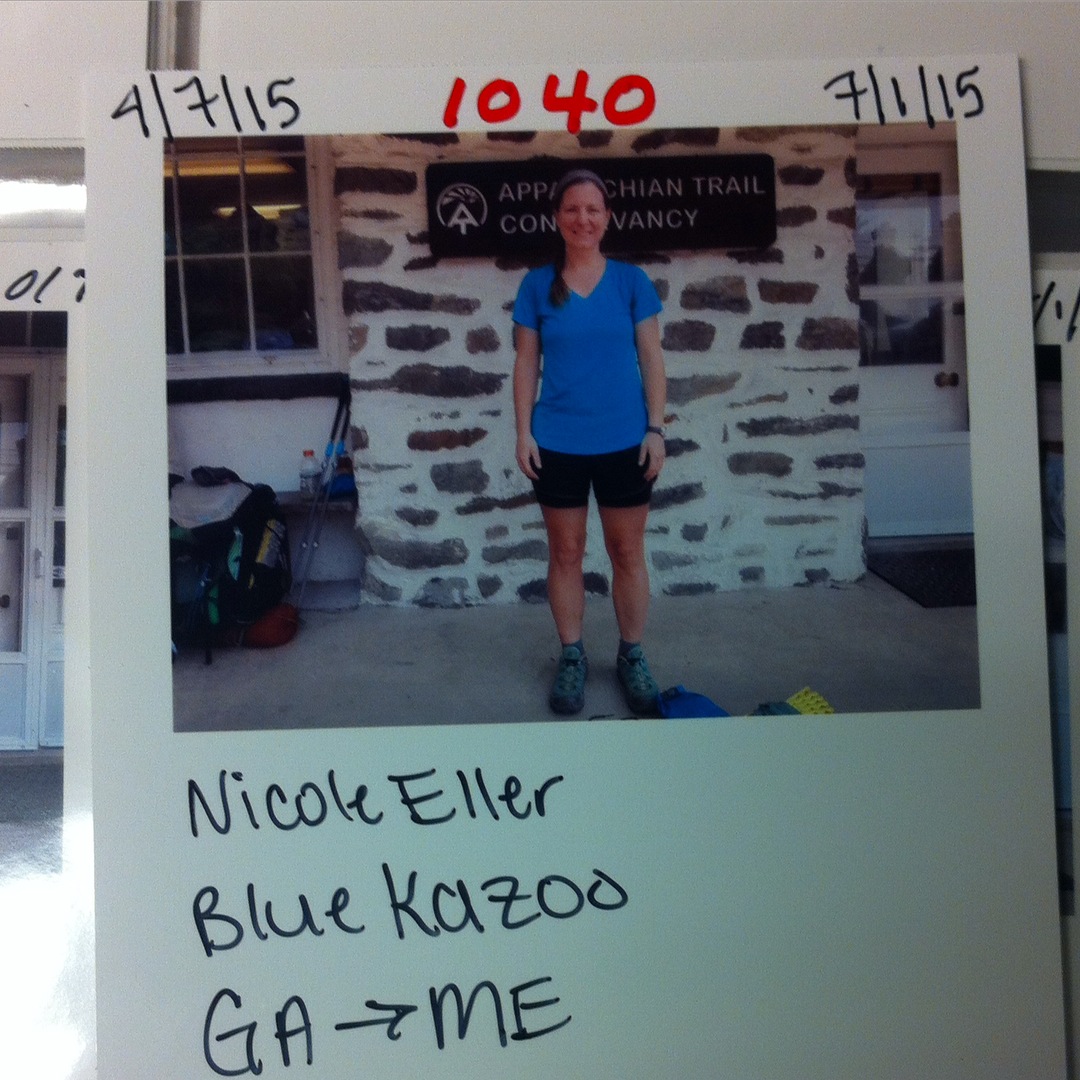 4/7/15 1040 7/1/15
APPA CHIAN TRAIL
CON VANCY
Nicole Eller
Blue Kazoo
GA → ME